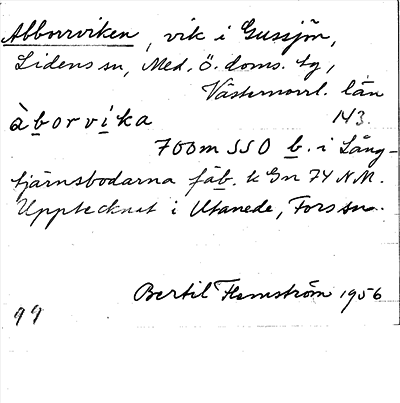 Abborrviken, vik i Gussjön,
Lidens sn, Med. ö. doms. tg,
Västernorrl. län
àborvíka 143.
700 m SSO b. i Lång-
tjärnsbodarna fäb. k Gn 74 N.M.
Upptecknat i Utanede, Fors sn.
Bertil Flemström 1956
99